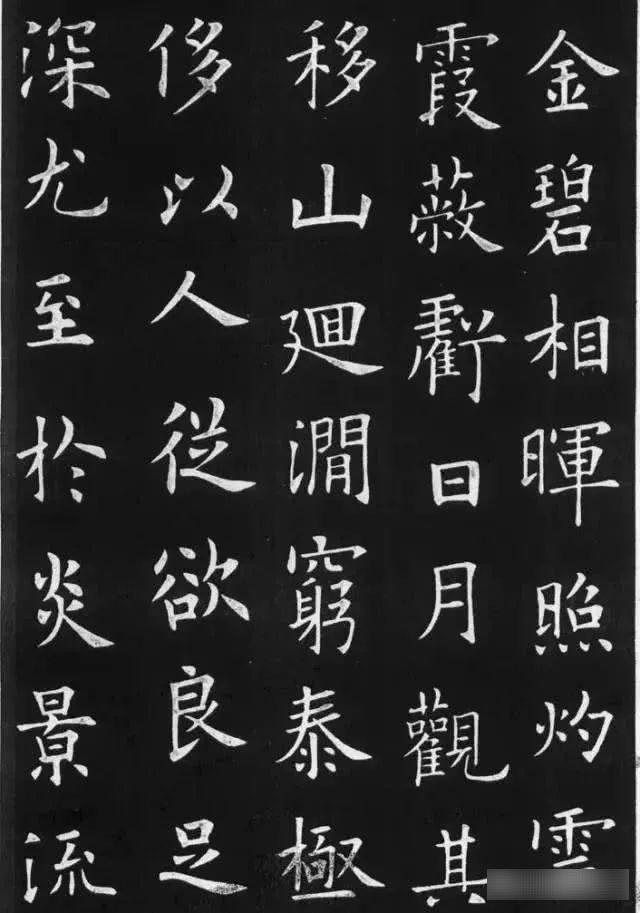 金碧相暉照灼雲
霞蔽虧日月觀其
移山廻澗窮泰極
侈以人從欲良足
深尤至於炎景流